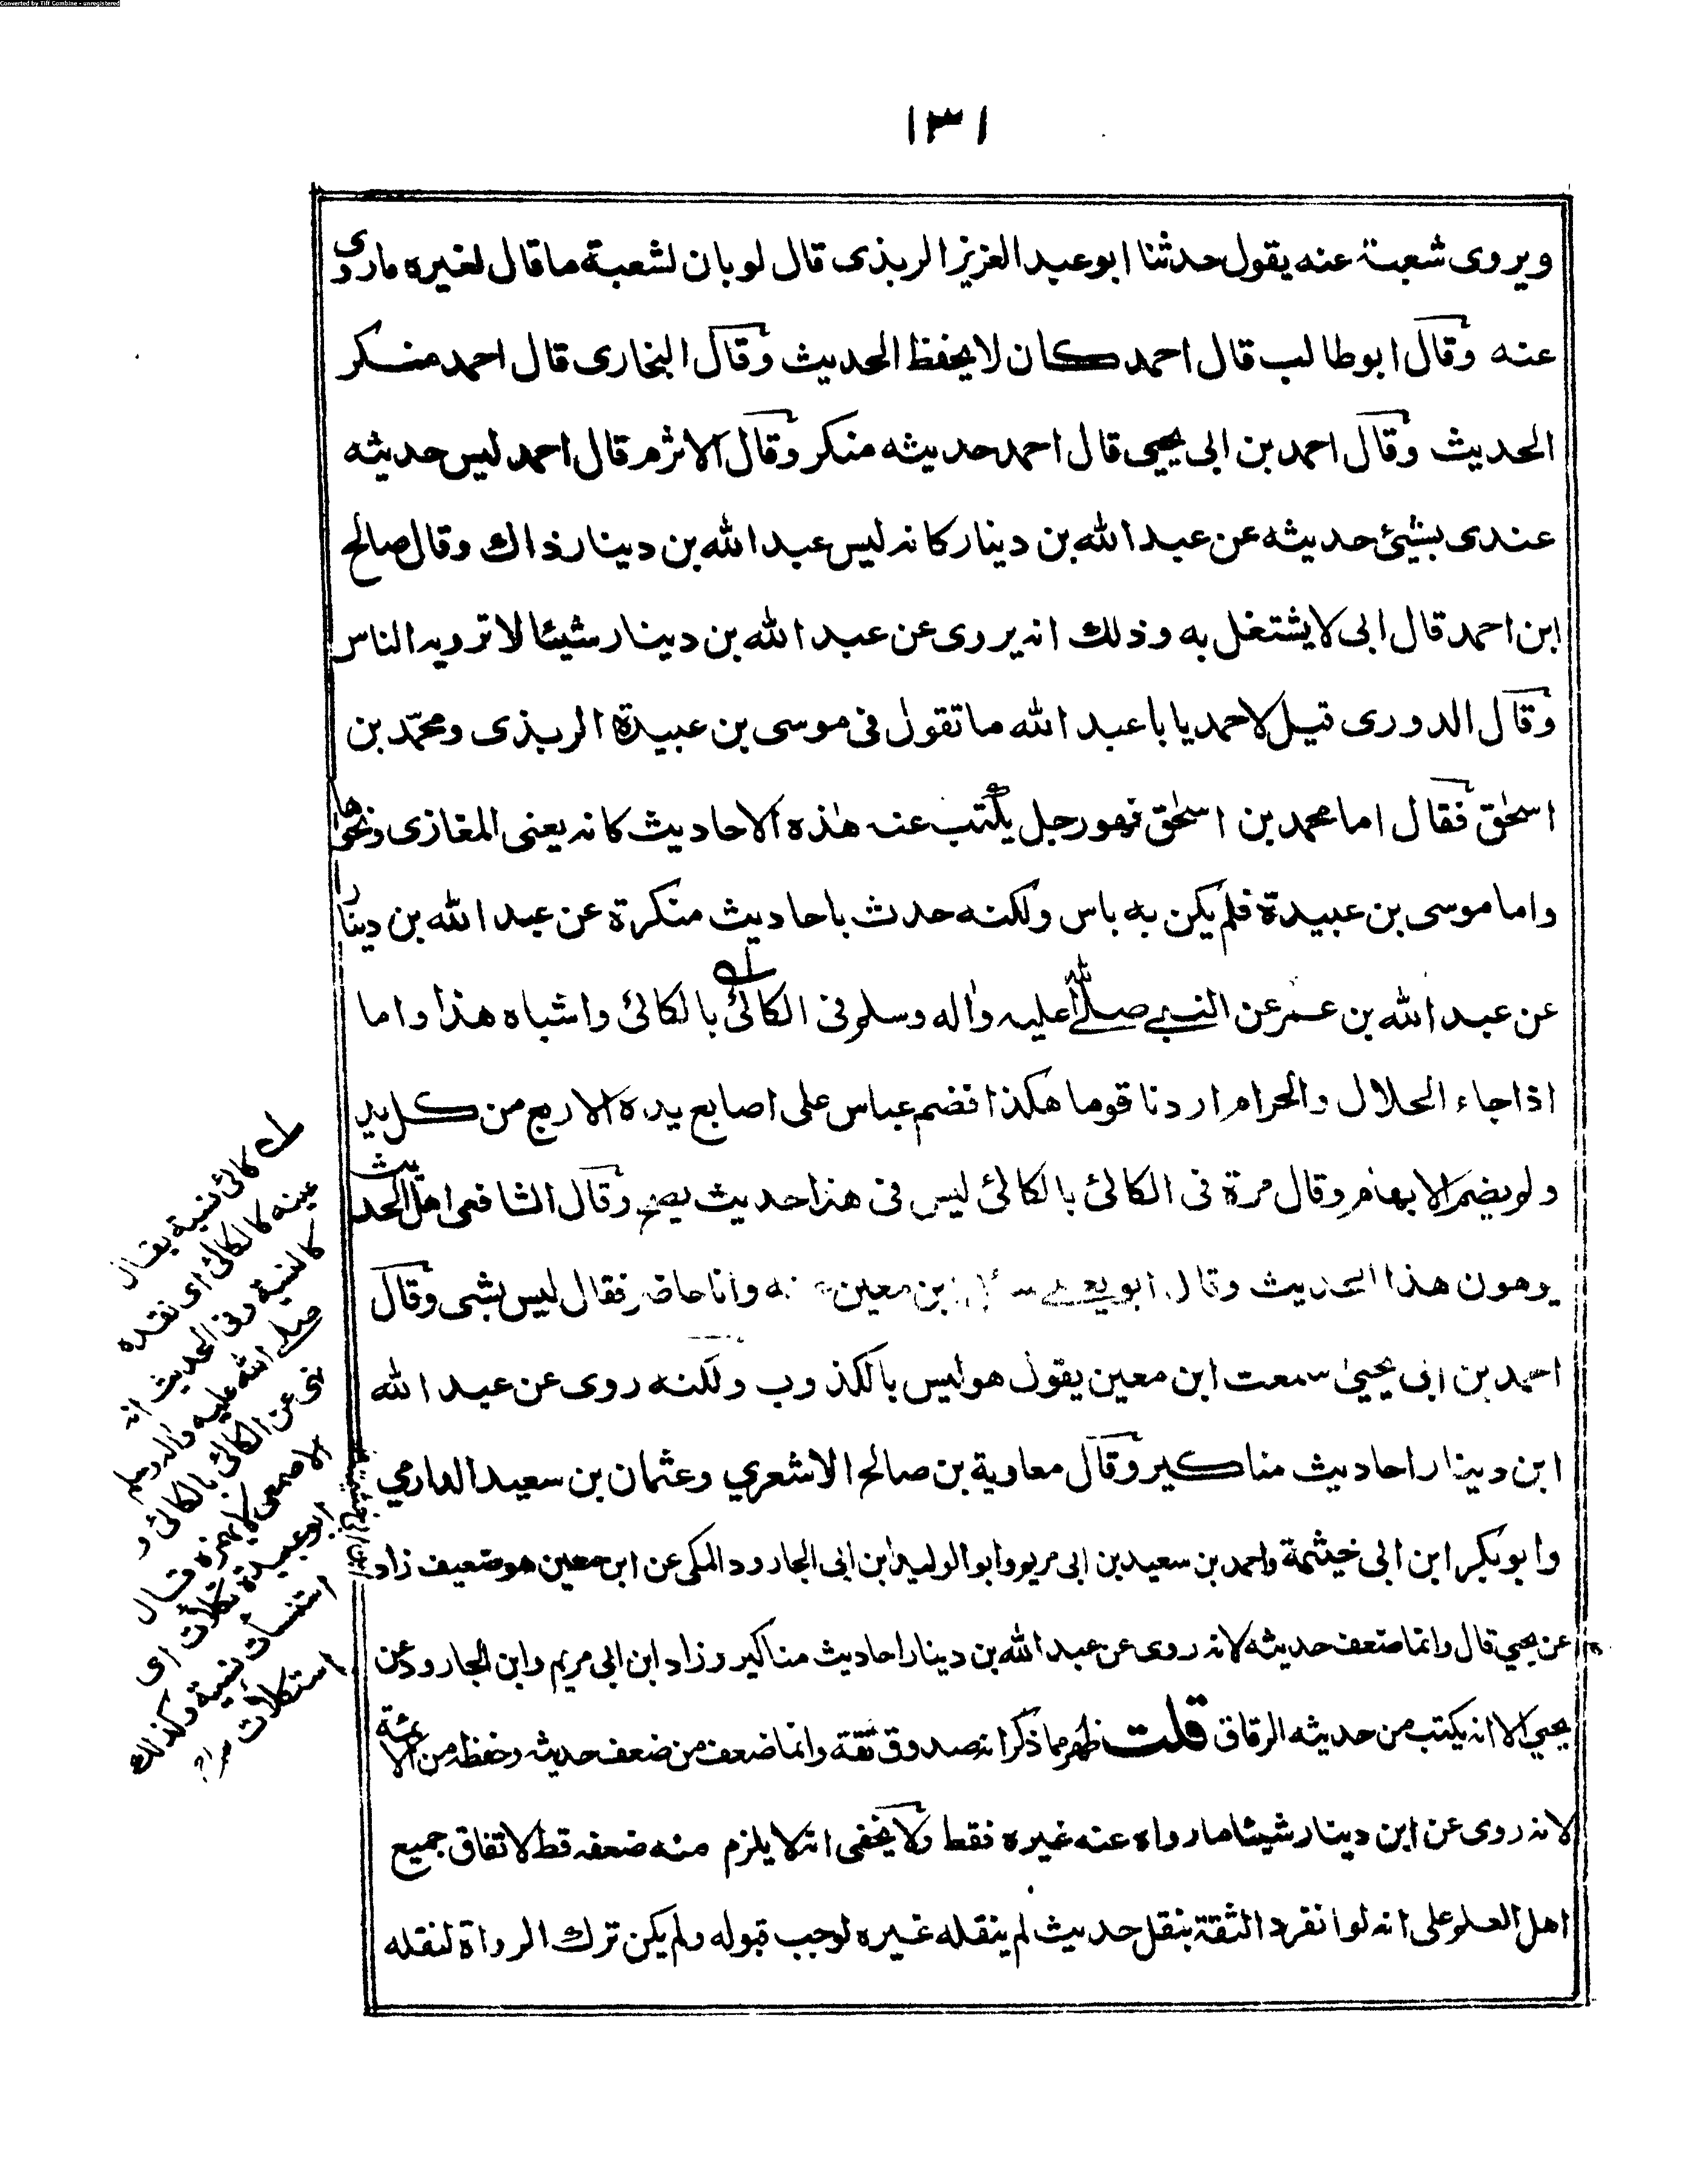 Converted by Tiff Combine - unregistered
١٣١
ويروى شعبة عنه يقول حدثنا ابو عبد العزيز الربذى قال لو بان لشعبة ما قال لغيره ما روى
عنه وقال ابو طالب قال احمد كان لا يحفظ الحديث وقال البخارى قال احمد منكر
الحديث وقال احمد بن ابى يحيى قال احمد حديثه منكر وقال الاثرم قال احمد ليس حديثه
عندى بشئ حديثه عن عبد الله بن دينار كانه ليس عبد الله بن دينار ذاك وقال صالح
ابن احمد قال ابى لا يشتغل به وذلك انه يروى عن عبد الله بن دينار شيئا لا ترويه الناس
وقال الدورى قيل لاحمد يا با عبد الله ما تقول فى موسى بن عبيدة الربذى ومحمّد بن
اسحٰق فقال اما محمد بن اسحٰق فهو رجل يكتب عنه هٰذه الاحاديث كانه يعنى المغازى ونحوها
واما موسى بن عبيدة فلم يكن به باس ولكنه حدث باحاديث منكرة عن عبد الله بن دينار
عن عبد الله بن عمر عن النبى صلى الله عليه واٰله وسلم فى الكالئ بالكالئ واشباه هذا واما
اذا جاء الحلال والحرام اردنا قوما هكذا فضم عباس على اصابع يده الاربع من كل يد
ولم يضم الابهام وقال مرة فى الكالئ بالكالئ ليس فى هذا حديث يصح وقال الشافعى اهل الحديث
يوهون هذا الحديث وقال ابو يعلى بن معين عنه وانا حاضر فقال ليس بشى وقال
احمد بن ابى يحيىٰ سمعت ابن معين يقول هو ليس بالكذوب ولكنه روى عن عبد الله
ابن دينار احاديث مناكير وقال معاوية بن صالح الاشعري وعثمان بن سعيد الدارمي
وابو بكر ابن ابى خيثمة واحمد بن سعيد بن ابى مريم وابو الوليد ابن ابى الجارود المكى عن ابن معين هو ضعيف زاد
عن يحيي قال وانما ضعف حديثه لانه روى عن عبد الله بن دينار احاديث مناكير وزاد ابن ابى مريم وابن الجارود عن
يحيي الا انه يكتب من حديثه الرقاق قلت ظهر مما ذكر انه صدوق ثقة وانما ضعف من ضعف حديثه وحفظه من الائمة
لانه روى عن ابن دينار شيئا ما رواه عنه غيره فقط ولا يخفى انه لا يلزم منه ضعفه قط لاتفاق جميع
اهل العلم على انه لو انفرد الثقة بنقل حديث لم ينقله غيره لوجب قبوله ولم يكن ترك الرواة لنقله
له كالئ نسية يقال
عينه كالكالئ اى نقده
كالنسية وفى الحديث انه
صلى الله عليه واٰله وسلم
نهى عن الكالئ بالكالئ و
الاصمعى لا يهمزه قال
ابو عبيدة تكلأت اى
استنسأت نسية وكذلك
استكلأت